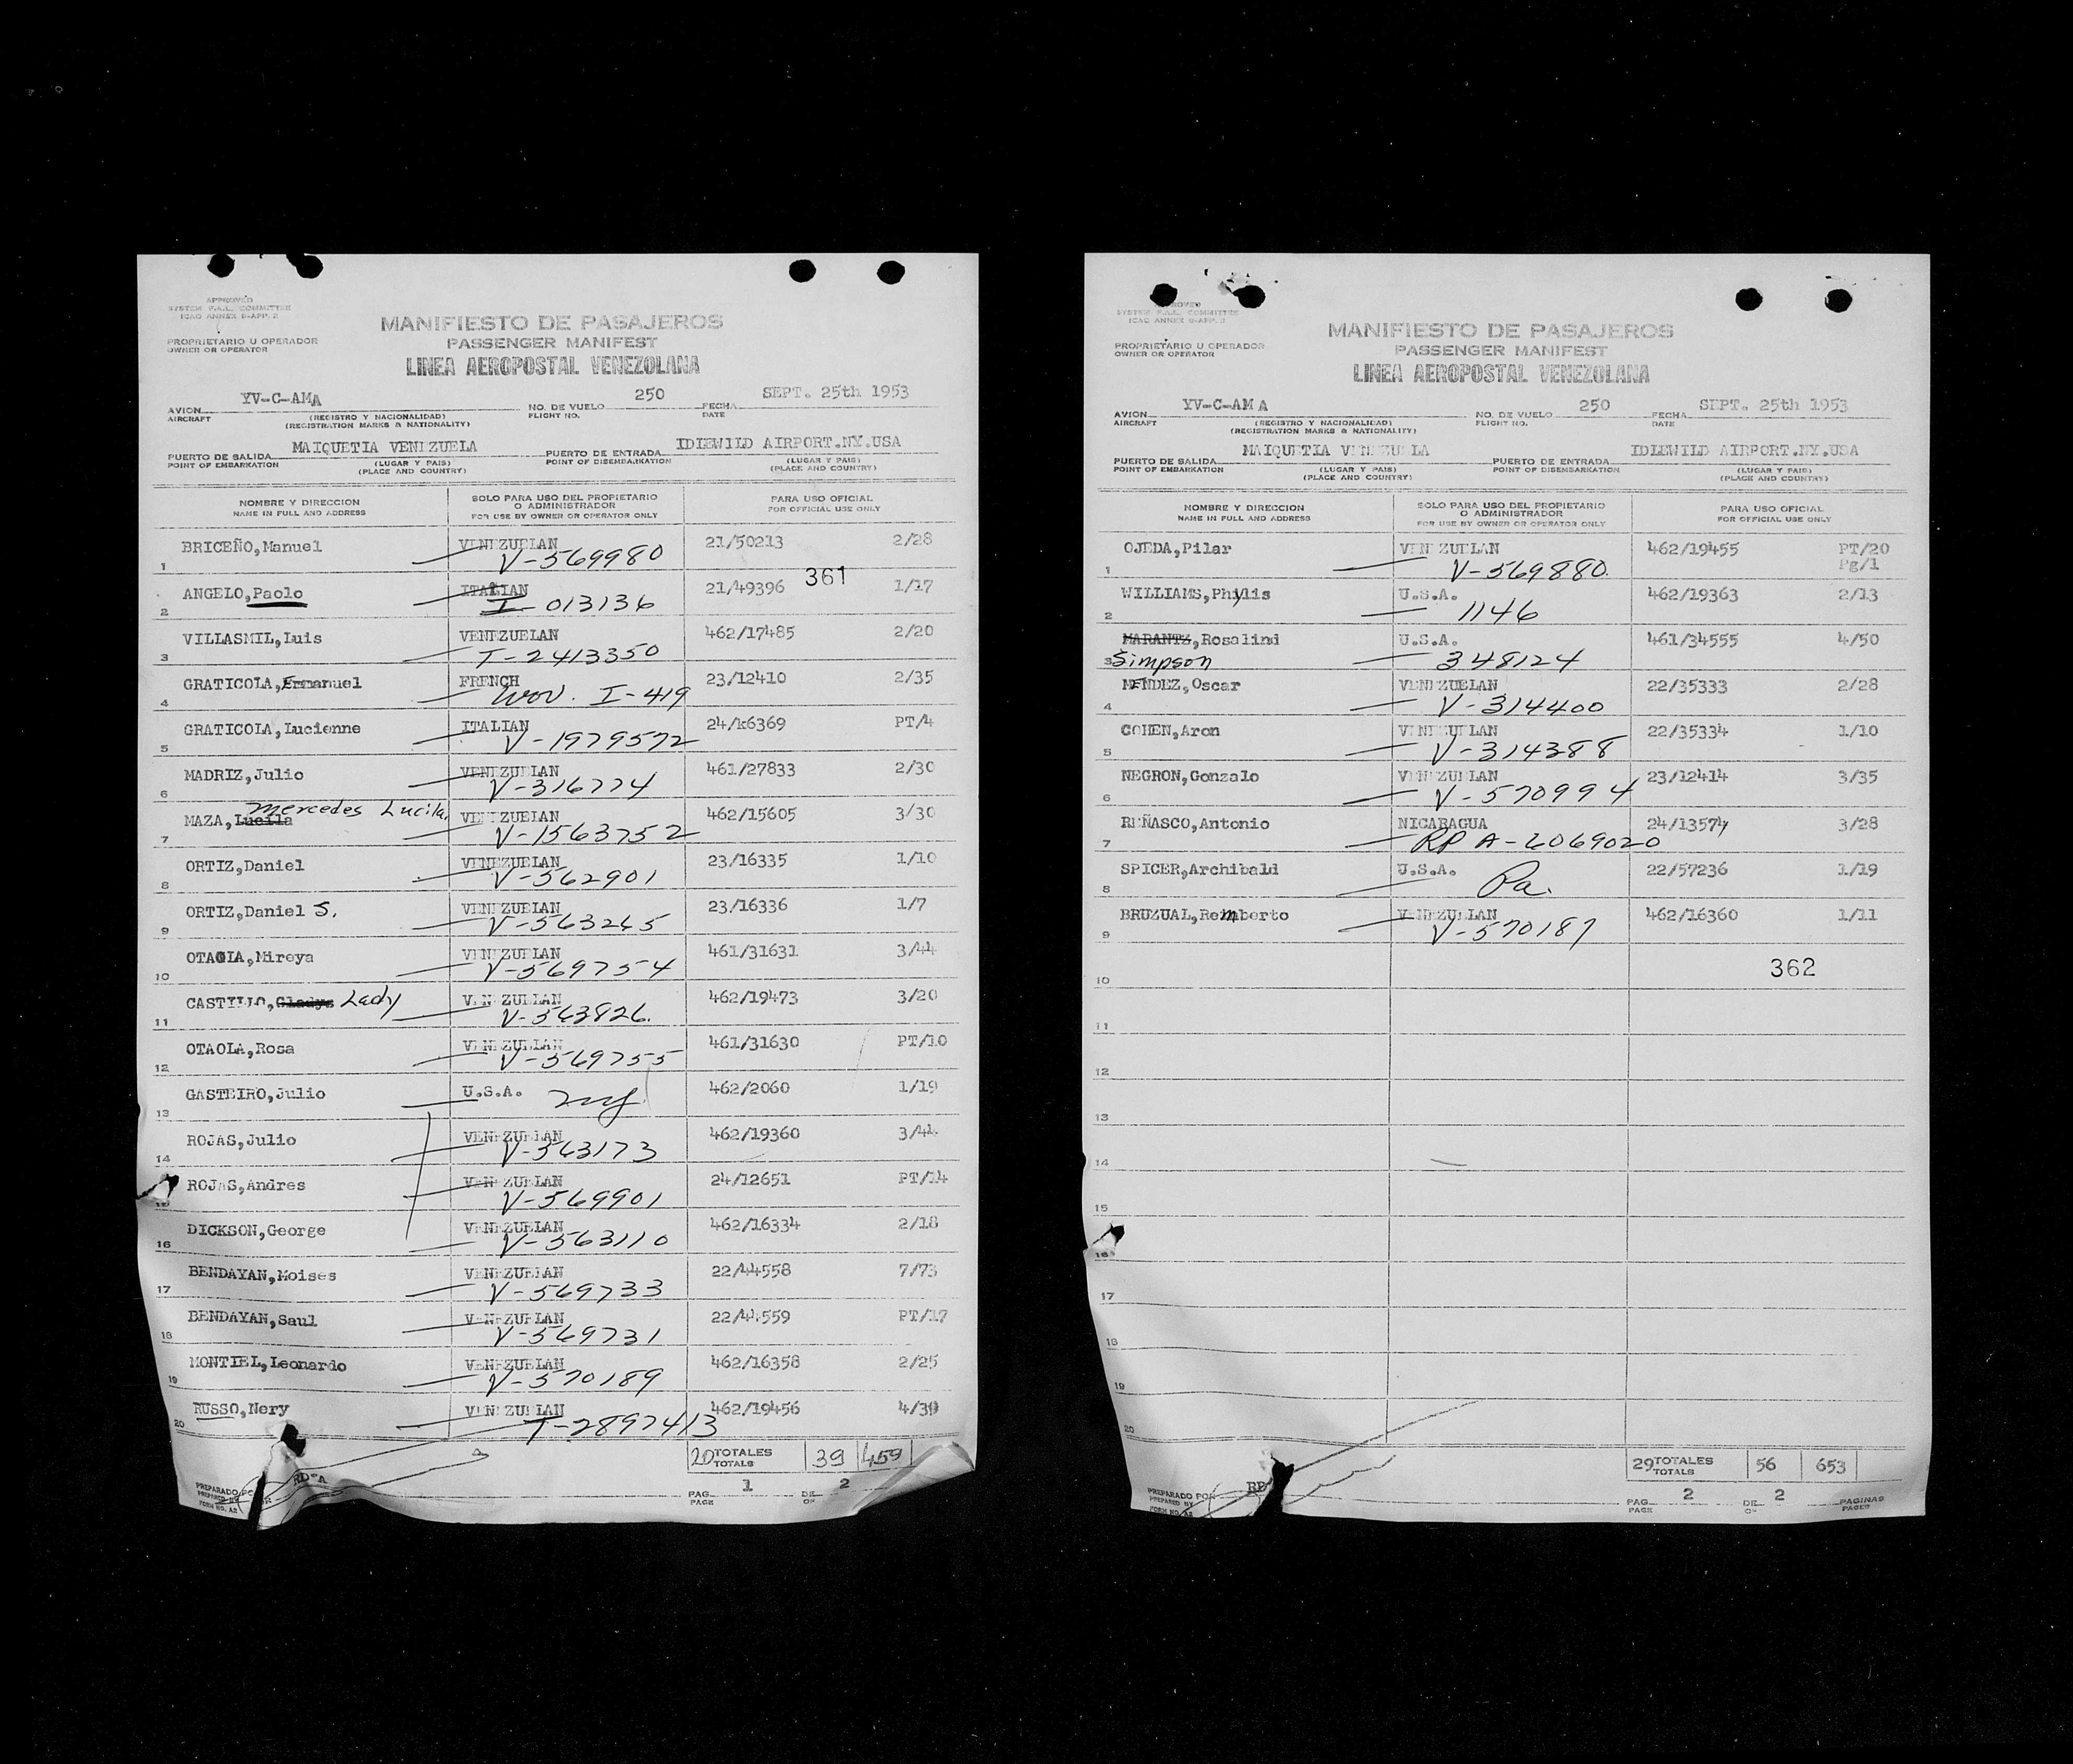 APPROVED
SYSTEM F.A.L. COMMITTEE
ICAO ANNEX 9-APP. 2
MANIFIESTO DE PASAJEROS
PASSENGER MANIFEST
LINEA AEROPOSTAL VENEZOLANA
PROPRIETARIO U OPERADOR
OWNER OR OPERATOR
AVION YV-C-AMA NO. DE VUELO 250 FECHA SEPT. 25th 1953
AIRCRAFT (REGISTRO Y NACIONALIDAD) FLIGHT NO. DATE
(REGISTRATION MARKS & NATIONALITY)
PUERTO DE SALIDA MAIQUETIA VENEZUELA PUERTO DE ENTRADA IDLEWILD AIRPORT.NY.USA
POINT OF EMBARKATION (LUGAR Y PAIS) POINT OF DISEMBARKATION (LUGAR Y PAIS)
(PLACE AND COUNTRY) (PLACE AND COUNTRY)
NOMBRE Y DIRECCION SOLO PARA USO DEL PROPIETARIO PARA USO OFICIAL
O ADMINISTRADOR
NAME IN FULL AND ADDRESS FOR USE BY OWNER OR OPERATOR ONLY FOR OFFICIAL USE ONLY
BRICEÑO,Manuel VENEZUELAN 21/50213 2/28
1 V-569980
361
ANGELO,Paolo ITALIAN 21/49396 1/17
2 I 013136
VILLASMIL,Luis VENEZUELAN 462/17485 2/20
3 T-2413350
GRATICOLA,Emmanuel FRENCH 23/12410 2/35
4 I-419
GRATICOLA,Lucienne ITALIAN 24/k6369 PT/4
5 V-1979572
MADRIZ,Julio VENEZUELAN 461/27833 2/30
6 V-316774
Mercedes Lucila
MAZA,Lucila VENEZUELAN 462/15605 3/30
7 V-1563752
ORTIZ,Daniel VENEZUELAN 23/16335 1/10
8 V-562901
ORTIZ,Daniel S. VENEZUELAN 23/16336 1/7
9 V-563265
OTAOLA,Mireya VENEZUELAN 461/31631 3/44
10 V-569754
CASTILLO,Gladys Lady VENEZUELAN 462/19473 3/20
11 V-563826
OTAOLA,Rosa VENEZUELAN 461/31630 PT/10
12 V-569755
GASTEIRO,Julio U.S.A. 462/2060 1/19
13
ROJAS,Julio VENEZUELAN 462/19360 3/44
14 V-563173
ROJAS,Andres VENEZUELAN 24/12651 PT/14
15 V-569901
DICKSON,George VENEZUELAN 462/16334 2/18
16 V-563110
BENDAYAN,Moises VENEZUELAN 22/44558 7/73
17 V-569733
BENDAYAN,Saul VENEZUELAN 22/44559 PT/17
18 V-569731
MONTIEL,Leonardo VENEZUELAN 462/16358 2/25
19 V-570189
RUSSO,Nery VENEZUELAN 462/19456 4/39
20 T-2897413
20 TOTALES 39 459
TOTALS
PREPARADO POR
PREPARED BY
FORM NO. A2
PAG. 1 DE 2
PAGE OF
APPROVED
SYSTEM F.A.L. COMMITTEE
ICAO ANNEX 9-APP. 2
MANIFIESTO DE PASAJEROS
PASSENGER MANIFEST
LINEA AEROPOSTAL VENEZOLANA
PROPRIETARIO U OPERADOR
OWNER OR OPERATOR
AVION YV-C-AMA NO. DE VUELO 250 FECHA SEPT. 25th 1953
AIRCRAFT (REGISTRO Y NACIONALIDAD) FLIGHT NO. DATE
(REGISTRATION MARKS & NATIONALITY)
PUERTO DE SALIDA MAIQUETIA VENEZUELA PUERTO DE ENTRADA IDLEWILD AIRPORT.NY.USA
POINT OF EMBARKATION (LUGAR Y PAIS) POINT OF DISEMBARKATION (LUGAR Y PAIS)
(PLACE AND COUNTRY) (PLACE AND COUNTRY)
NOMBRE Y DIRECCION SOLO PARA USO DEL PROPIETARIO PARA USO OFICIAL
O ADMINISTRADOR
NAME IN FULL AND ADDRESS FOR USE BY OWNER OR OPERATOR ONLY FOR OFFICIAL USE ONLY
OJEDA,Pilar VENEZUELAN 462/19455 PT/20
1 V-569880. Pg/1
WILLIAMS,Phylis U.S.A. 462/19363 2/13
2 1146
MARANTZ,Rosalind U.S.A. 461/34555 4/50
3 Simpson 348124
MENDEZ,Oscar VENEZUELAN 22/35333 2/28
4 V-314400
COHEN,Aron VENEZUELAN 22/35334 1/10
5 V-314388
NEGRON,Gonzalo VENEZUELAN 23/12414 3/35
6 V-570994
REÑASCO,Antonio NICARAGUA 24/13574 3/28
7 RP A-6069020
SPICER,Archibald U.S.A. 22/57236 1/19
8 Pa.
BRUZUAL,Remberto VENEZUELAN 462/16360 1/11
9 V-570187
362
10
11
12
13
14
15
16
17
18
19
20
29 TOTALES 56 653
TOTALS
PREPARADO POR
PREPARED BY
FORM NO. A2
PAG. 2 DE 2 PAGINAS
PAGE OF PAGES